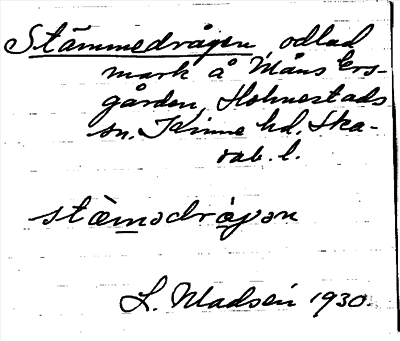 Stämmedråpen, odlad
mark å Måns Ers-
gården, Holmestads
sn. Kinne hd. Ska-
rab. l.
stæmədråpən
L. Madsén 1930.